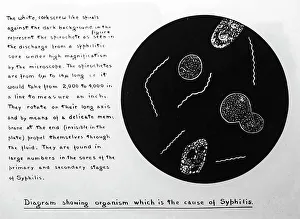 The white, corkscrew like spirals
against the dark background in the figure
represent the spirochete as seen in
the discharge from a syphilitic
sore under high magnification
by the microscope. The spirochetes
are from up to long or it
would take from 2,000 to 4,000 in
a line to measure an inch.
They rotate on their long axis
and by means of a delicate mem-
brane at the end (invisible in the
plate) propel themselves through
the fluid. They are found in
large numbers in the sores of the
primary and secondary stages
of Syphilis.
Diagram showing organism which is the cause of Syphilis.